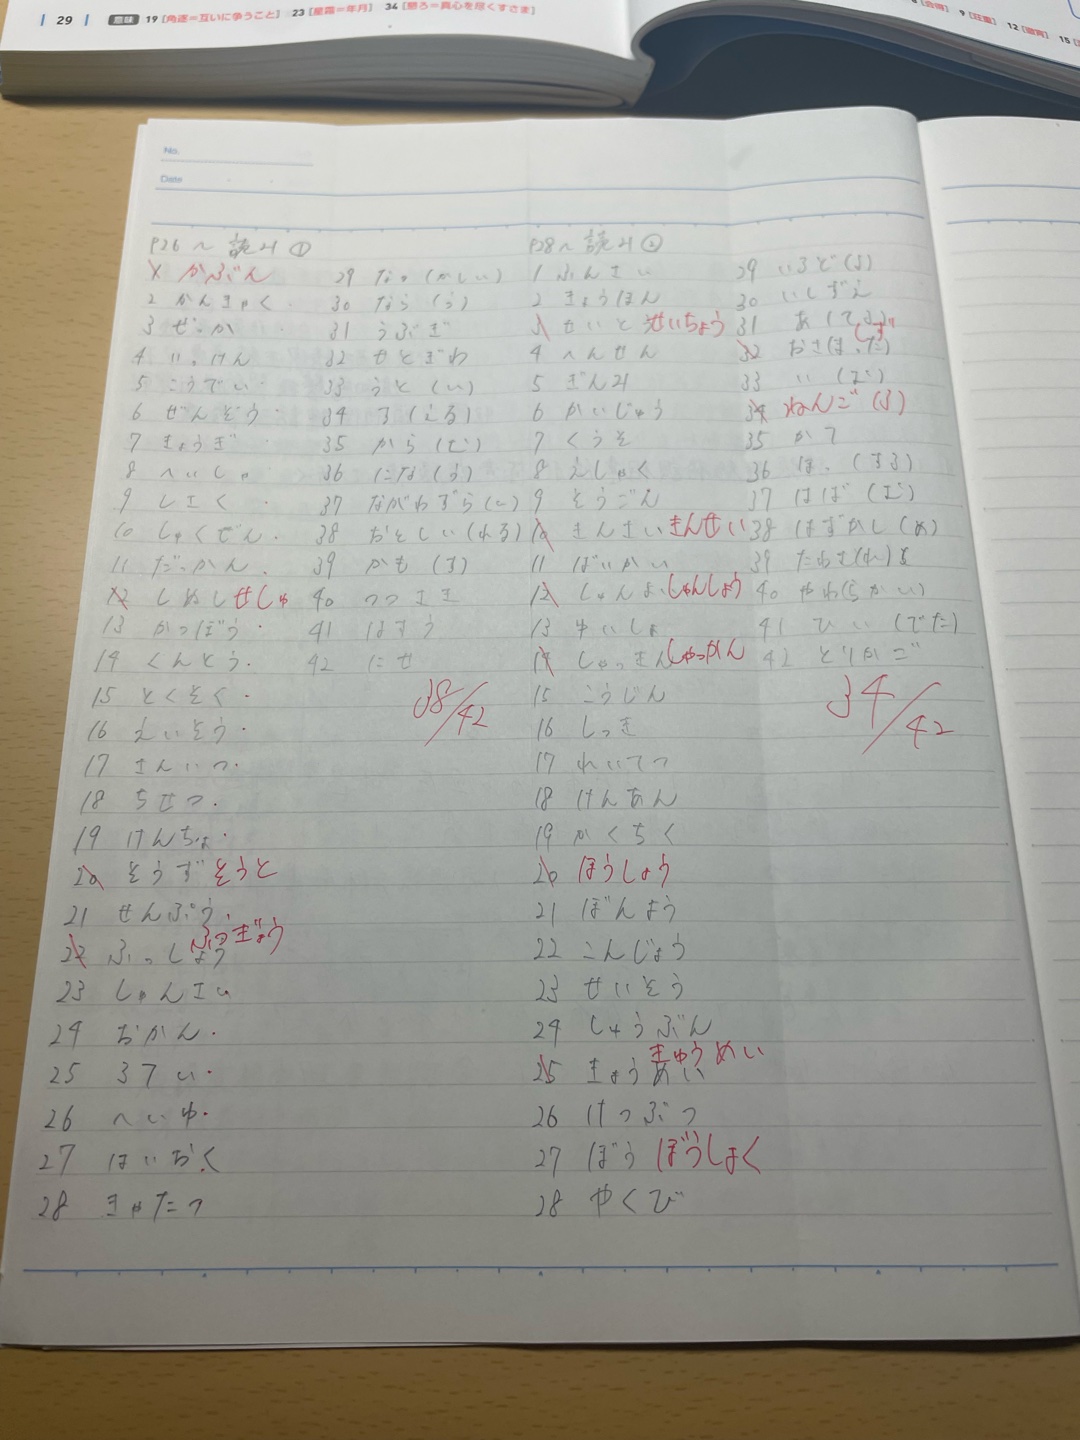 29 意味 19[角逐=互いに争うこと] 23[星霜=年月] 34[懇ろ=真心を尽くすさま]
12[宥
15
No.
Date
P26～読み①
1 かぶん
2 かんきゃく
3 ぜっか
4 いっけん
5 こうでい
6 ぜんぞう
7 きょうぎ
8 へいしゃ
9 しさく
10 しゃくぜん
11 だっかん
12 しぬし せしゅ
13 かっぽう
14 くんとう
15 とくそく
16 えいそう
17 さんいつ
18 ちせつ
19 けんちょ
20 そうず そうと
21 せんぷう
22 ふっしょう ふつぎょう
23 しゅんさい
24 おかん
25 ろてい
26 へいゆ
27 はいおく
28 きゃたつ
29 なつ(かしい)
30 なら(う)
31 うぶぎ
32 せとぎわ
33 うと(い)
34 す(える)
35 から(む)
36 にな(う)
37 ながわずら(い)
38 おとしい(れる)
39 かも(す)
40 つつささ
41 はすう
42 にせ
38/42
P28～読み②
1 ふんさい
2 きょうほん
3 せいと せいちょう
4 へんせん
5 ぎんみ
6 かいじゅう
7 くうそ
8 えしゃく
9 そうごん
10 きんさい きんせい
11 ばいかい
12 しゅんよ しゅんしょう
13 ゆいしょ
14 しゃっきん しゃっかん
15 こうじん
16 しっき
17 れいてつ
18 けんあん
19 かくちく
20 ほうしょう
21 ぼんよう
22 こんじょう
23 せいそう
24 しゅうぶん
25 きょうめい きゅうめい
26 けつぶつ
27 ぼう ぼうしょく
28 やくび
29 いろど(る)
30 いしずえ
31 あ(てる)
32 おさ(ほった)
33 い(む)
34 ねんご(ろ)
35 かて
36 ほっ(する)
37 はば(む)
38 はずかし(め)
39 たわむ(れ)る
40 やわ(らかい)
41 ひい(でた)
42 とりかご
34/42